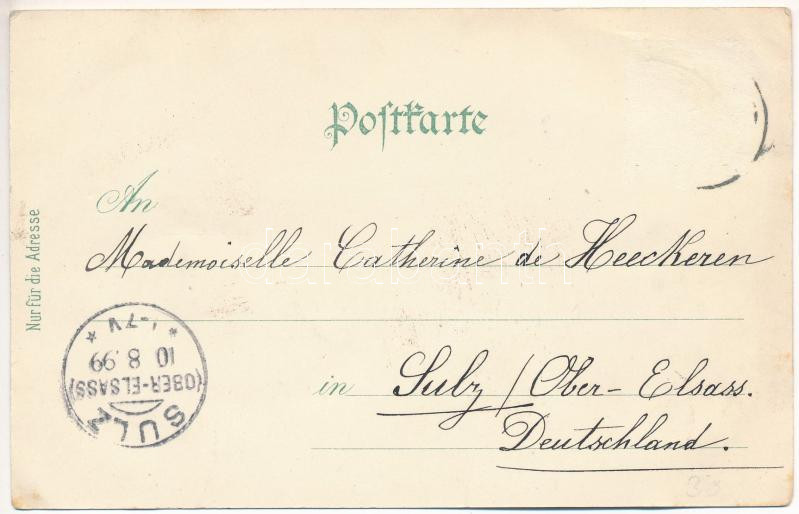 Postkarte
An
Mademoiselle Catherine de Heeckeren
in Sulz / Ober-Elsass.
Deutschland.
Nur für die Adresse
SULZ
(OBER-ELSASS)
10 8.99
* -7V *
38
darabanth